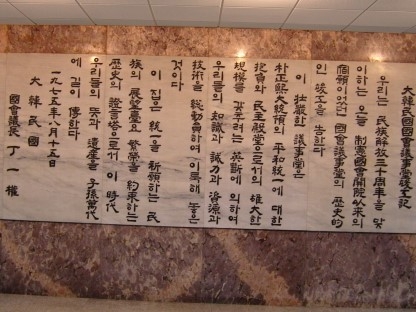 大韓民國國會議事堂竣工記
우리는 民族解放三十周年을 맞
이하는 오늘 制憲國會開院以來의
宿願이었던 國會議事堂의 歷史的
인 竣工을 告한다
이 壯嚴한 議事堂은
朴正熙大統領의 平和統一에 대한
抱負와 民主殿堂으로서의 雄大한
規模를 갖추려는 英斷에 의하여
우리들의 知識과 誠力과 資源과
技術을 總動員하여 이룩해 놓은
것이다
이 집은 統一을 祈願하는 民
族의 展望臺요 繁榮을 約束하는
歷史의 證言塔으로서 이 時代
우리들의 뜻과 遺産을 子孫萬代
에 길이 傳한다
一九七五年八月十五日
大韓民國
國會議長 丁一權